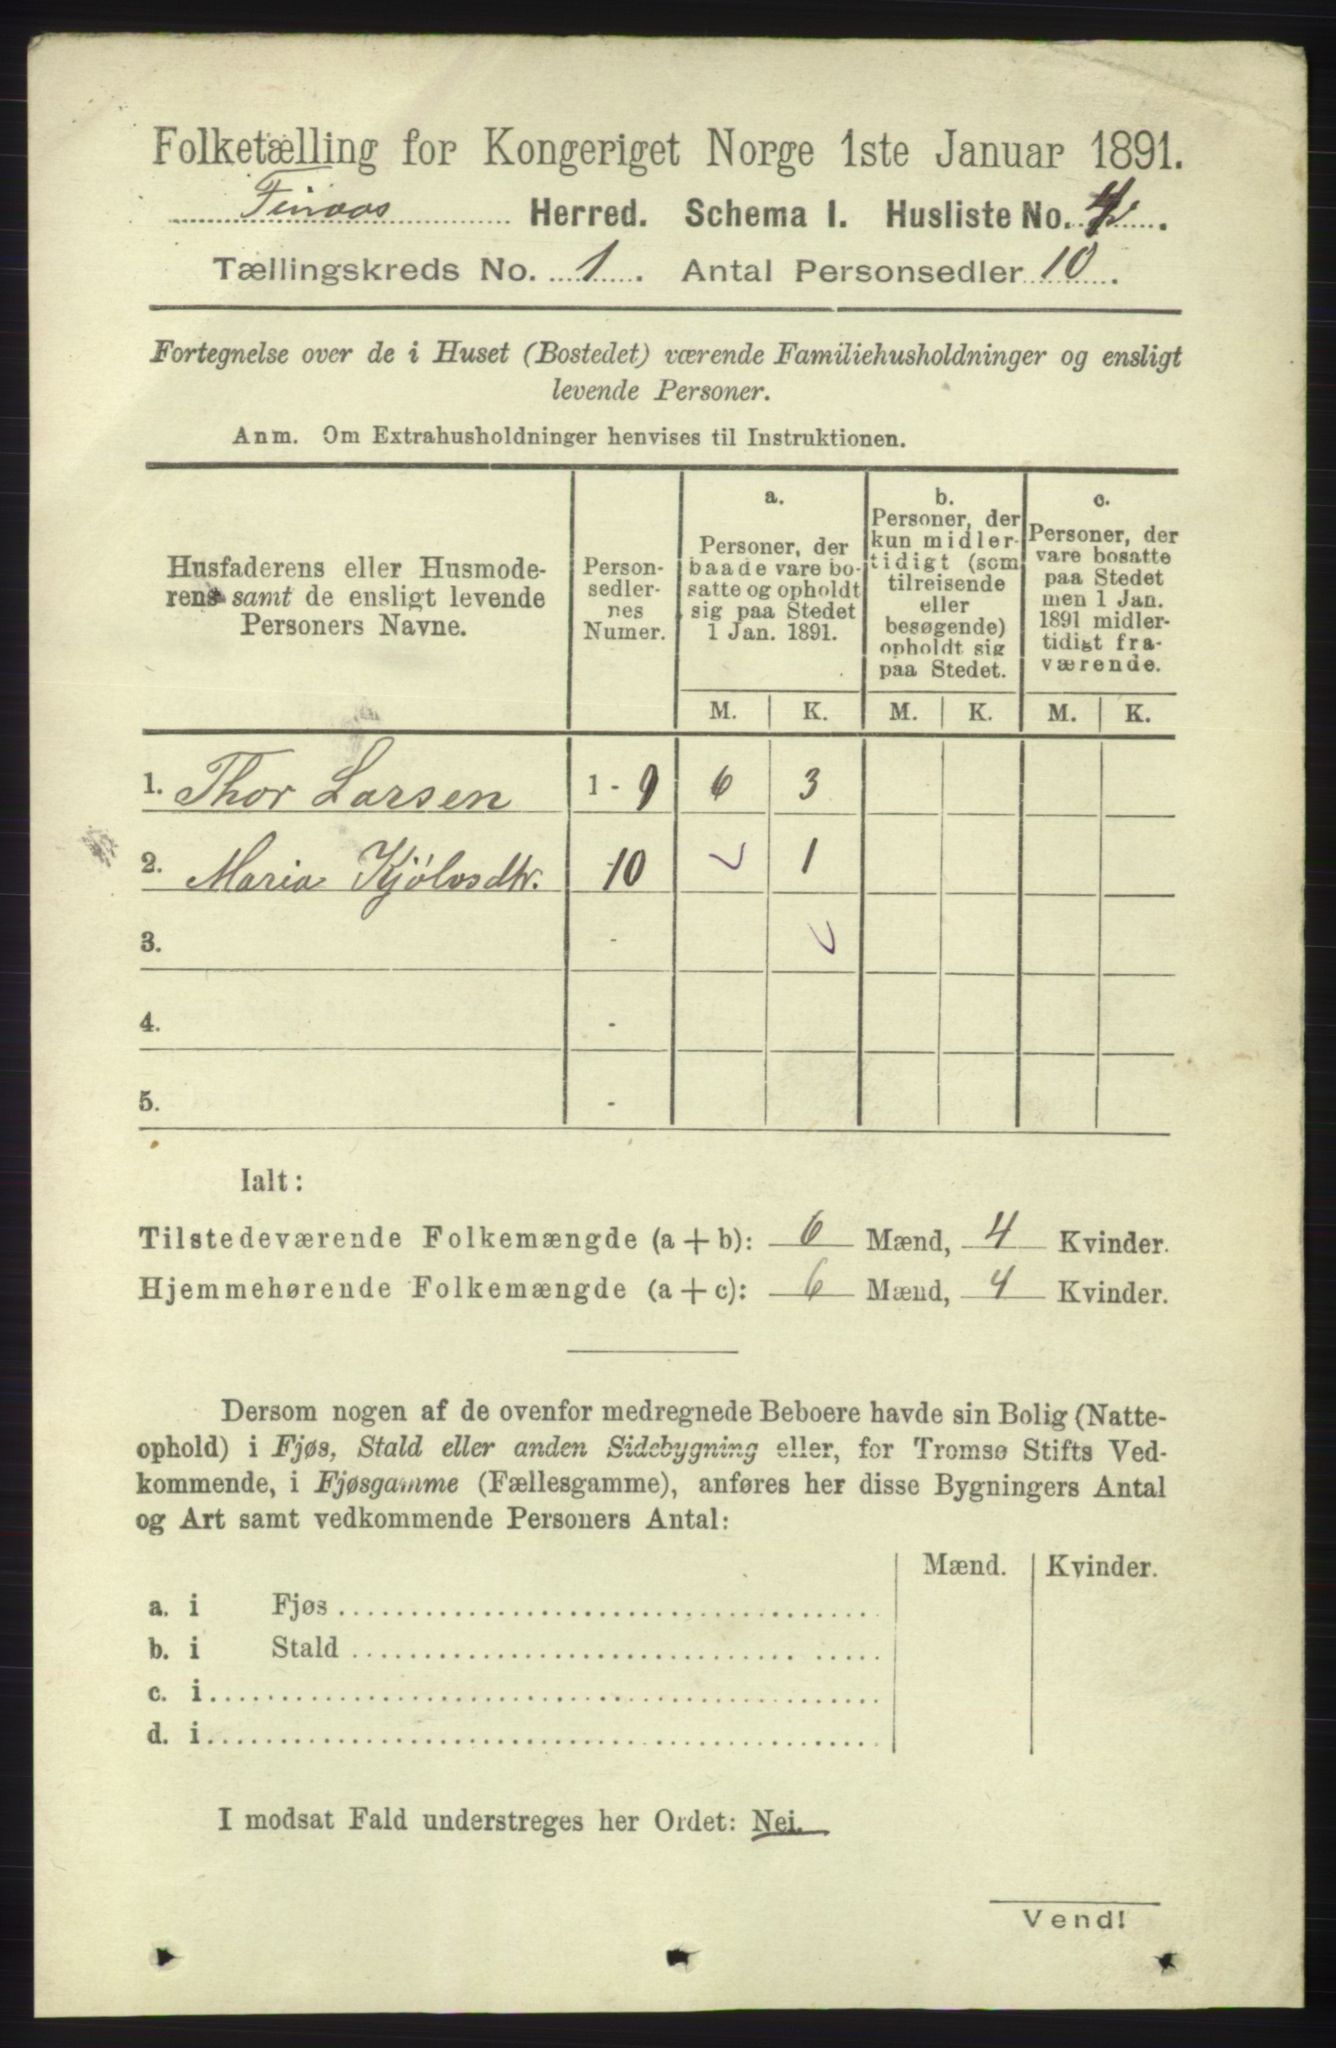 Folketælling for Kongeriget Norge 1ste Januar 1891.
Finaas Herred. Schema I. Husliste No. 4.
Tællingskreds No. 1. Antal Personsedler 10.
Fortegnelse over de i Huset (Bostedet) værende Familiehusholdninger og ensligt
levende Personer.
Anm. Om Extrahusholdninger henvises til Instruktionen.
Husfaderens eller Husmode-
rens samt de ensligt levende
Personers Navne.
Person-
sedler-
nes
Numer.
a.
Personer, der
baade vare bo-
satte og opholdt
sig paa Stedet
1 Jan. 1891.
b.
Personer, der
kun midler-
tidigt (som
tilreisende
eller
besøgende)
opholdt sig
paa Stedet.
c.
Personer, der
vare bosatte
paa Stedet
men 1 Jan.
1891 midler-
tidigt fra-
værende.
M. K. M. K. M. K.
1. Thor Larsen 1 - 9 6 3
2. Maria Kjölvsdtr. 10 1
3. -
4. -
5. -
Ialt:
Tilstedeværende Folkemængde (a + b): 6 Mænd, 4 Kvinder.
Hjemmehørende Folkemængde (a + c): 6 Mænd, 4 Kvinder.
Dersom nogen af de ovenfor medregnede Beboere havde sin Bolig (Natte-
ophold) i Fjøs, Stald eller anden Sidebygning eller, for Tromsø Stifts Ved-
kommende, i Fjøsgamme (Fællesgamme), anføres her disse Bygningers Antal
og Art samt vedkommende Personers Antal:
Mænd. Kvinder.
a. i Fjøs
b. i Stald
c. i
d. i
I modsat Fald understreges her Ordet: Nei.
Vend!